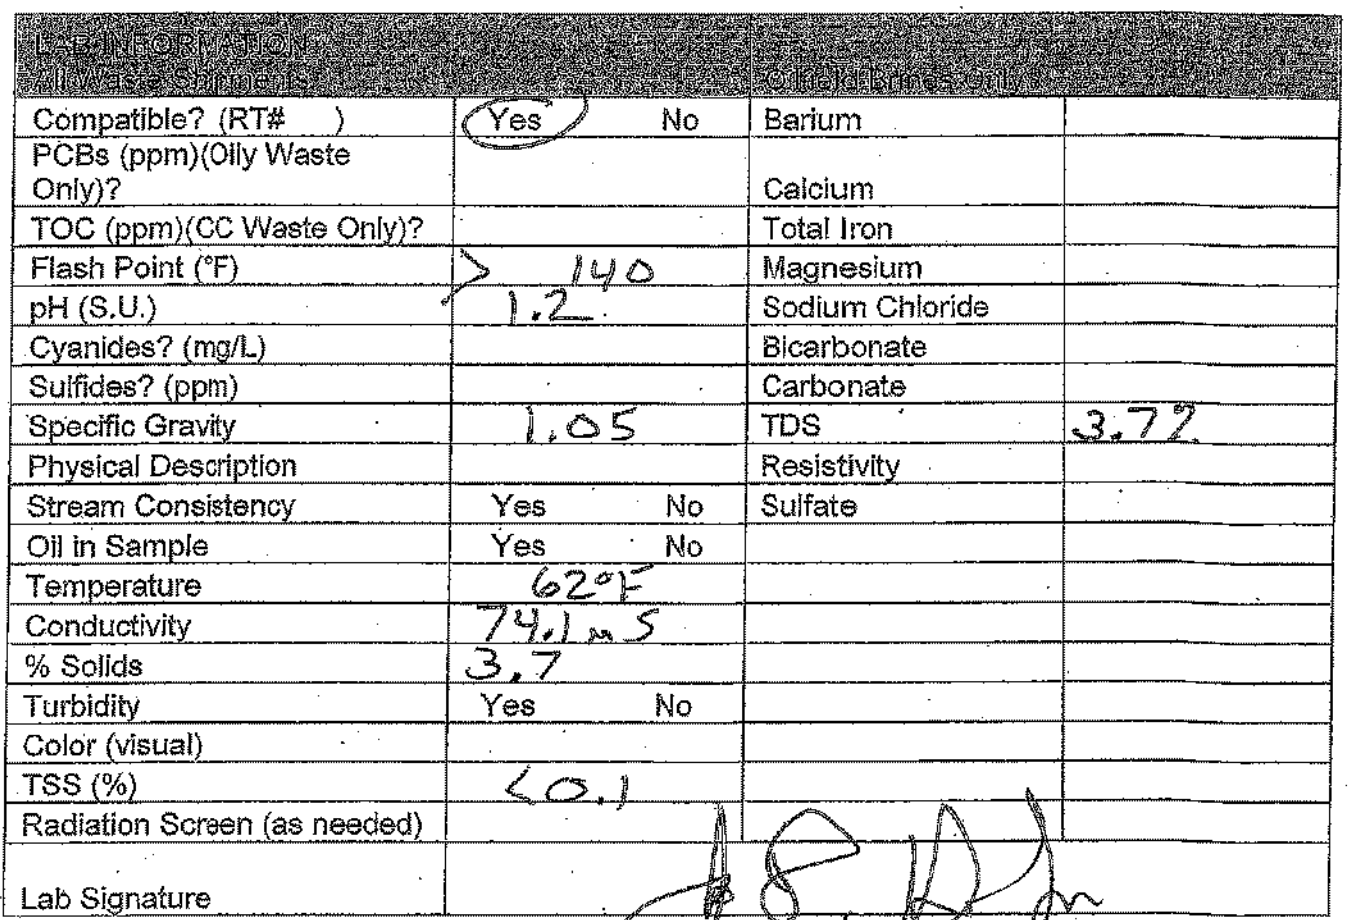 LAB INFORMATION
All Waste Shipments Oilfield Brines Only
Compatible? (RT# ) Yes No Barium
PCBs (ppm)(Oily Waste
Only)? Calcium
TOC (ppm)(CC Waste Only)? Total Iron
Flash Point (°F) > 140 Magnesium
pH (S.U.) 1.2 Sodium Chloride
Cyanides? (mg/L) Bicarbonate
Sulfides? (ppm) Carbonate
Specific Gravity 1.05 TDS 3.7%
Physical Description Resistivity
Stream Consistency Yes No Sulfate
Oil in Sample Yes No
Temperature 62°F
Conductivity 74.1 mS
% Solids 3.7
Turbidity Yes No
Color (visual)
TSS (%) <0.1
Radiation Screen (as needed)
Lab Signature